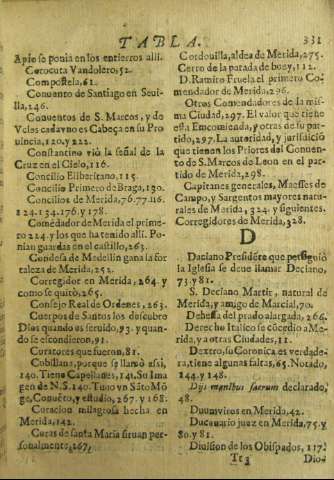 TABLA.
331
Apio se ponia en los entierros alli.
Corocuta Vandolero, 52.
Compostela, 61.
Conuento de Santiago en Seui-
lla, 246.
Conuentos de S. Marcos, y de
Vcles cada vno es Cabeça en su Pro
uincia, 120. y 222.
Constantino viò la señal de la
Cruz en el Cielo, 116.
Concilio Eliberitano, 115.
Concilio Primero de Braga, 130.
Concilios de Merida, 76. 77. 116.
124. 134. 176. y 178.
Comẽdador de Merida el prime-
ro 224. y los que ha tenido alli. Po
nian guardas en el castillo, 263.
Condesa de Medellin gana la for
taleza de Merida, 252.
Corregidor en Merida, 264. y
como se quitò, 265.
Consejo Real de Ordenes, 263.
Cuerpos de Santos los descubre
Dios quando es seruido, 93. y quan-
do se escondieron, 91.
Curatores que fueron, 81.
Cubillana, porque se llamò assi,
140. Tiene Capellanes, 141. Su Ima
gen de N. S. 140. Tuuo vn Sãto Mõ
ge, Conuẽto, y estudio, 267. y 268.
Curacion milagrosa hecha en
Merida, 142.
Curas de santa Maria siruan per-
sonalmente, 267.
Cordouilla, aldea de Merida, 275.
Cerro de la parada de buey, 112.
D. Ramiro Fruela el primero Co-
mendador de Merida, 296.
Otros Comendadores de la mis-
ma Ciudad, 297. El valor que tiene
esta Encomienda, y otras de su par-
tido, 297. La autoridad, y jurisdiciõ
que tienen los Priores del Conuen-
to de S. Marcos de Leon en el par-
tido de Merida, 298.
Capitanes generales, Maesses de
Campo, y Sargentos mayores natu-
rales de Merida, 324. y siguientes.
Corregidores de Merida, 328.
D
Daciano Presidẽte que persiguiò
la Iglesia se deue llamar Deciano,
73. y 81.
S. Deciano Martir, natural de
Merida, y amigo de Marcial, 70.
Dehesa del prado alargada, 264.
Derecho Italico se cõcedio a Me-
rida, y a otras Ciudades, 11.
Dextro, su Coronica es verdade-
ra, tiene algunas faltas, 65. Notado,
144. y 148.
Dijs manibus sacrum declarado,
48.
Duumviros en Merida, 42.
Ducenario juez en Merida, 75. y
80. y 81.
Diuision de los Obispados, 117.
Tt 3
Dios